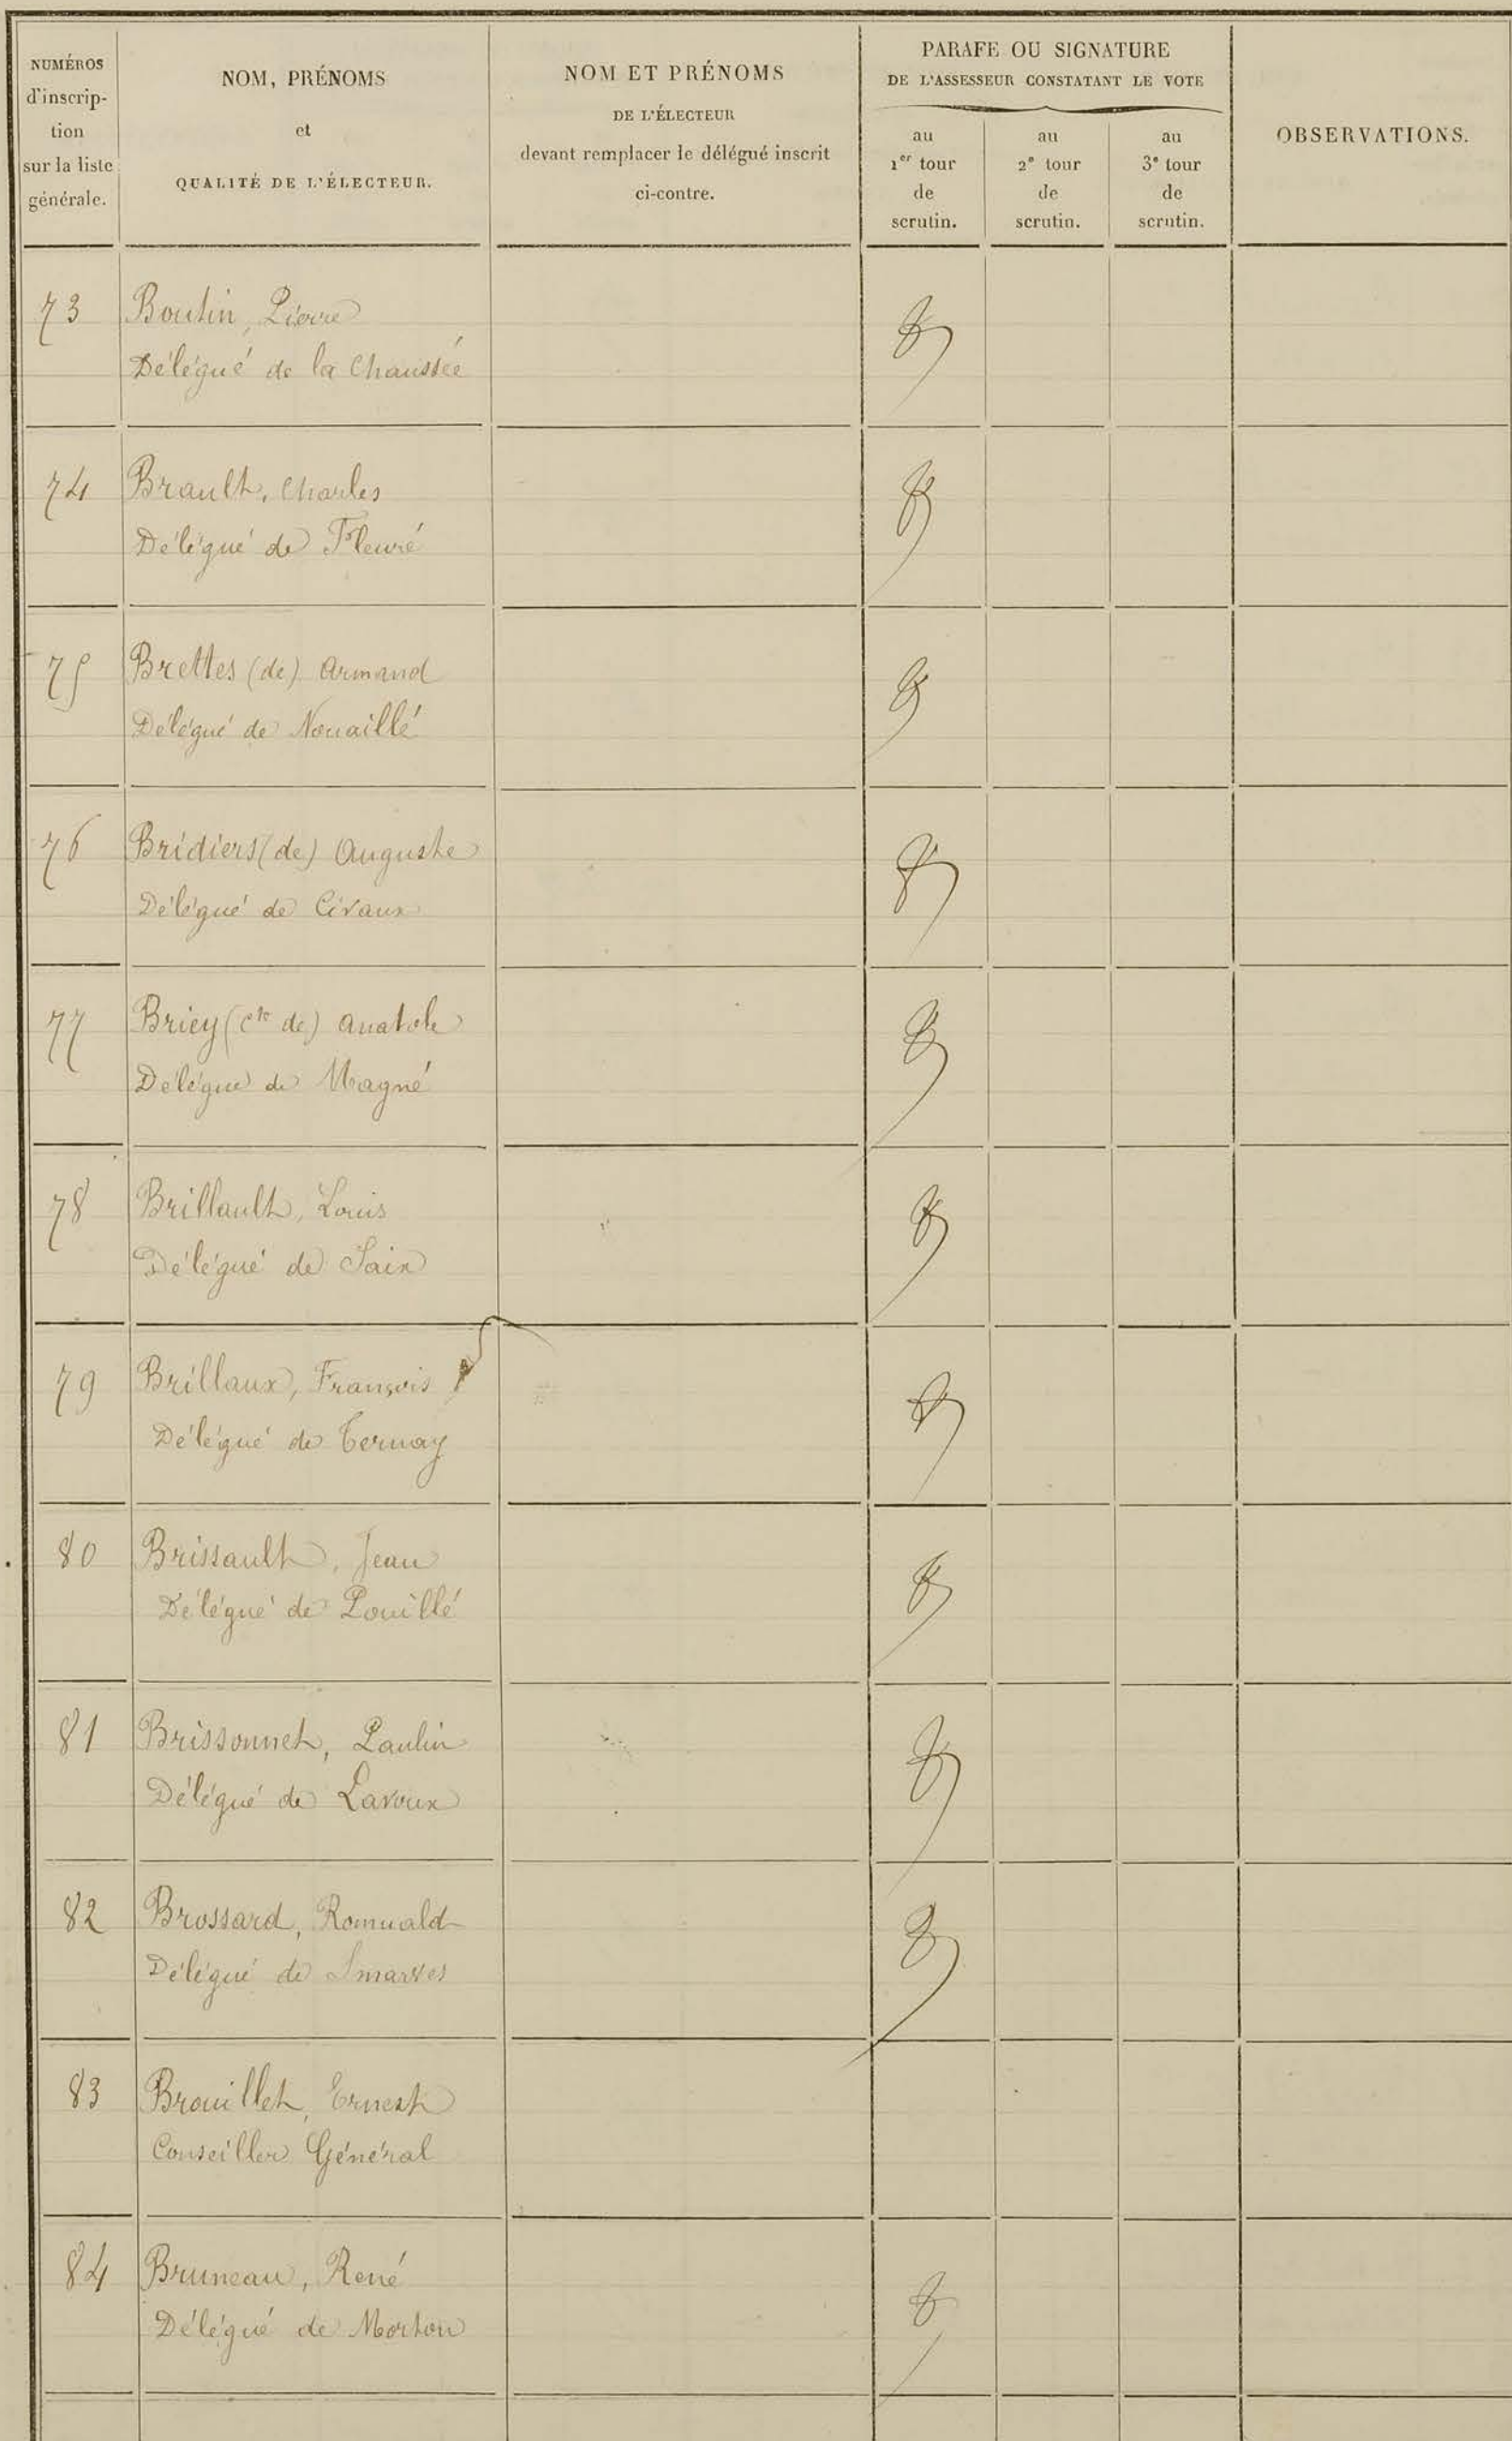 NUMÉROS
d'inscrip-
tion
sur la liste
générale.
NOM, PRÉNOMS
et
QUALITÉ DE L'ÉLECTEUR.
NOM ET PRÉNOMS
DE L'ÉLECTEUR
devant remplacer le délégué inscrit
ci-contre.
PARAFE OU SIGNATURE
DE L'ASSESSEUR CONSTATANT LE VOTE
au
1er tour
de
scrutin.
au
2e tour
de
scrutin.
au
3e tour
de
scrutin.
OBSERVATIONS.
73 Boutin, Pierre
Délégué de la Chaussée
74 Brault, Charles
Délégué de Fleuré
75 Brettes (de) Armand
Délégué de Nouaillé
76 Bridiers (de) Auguste
Délégué de Civaux
77 Briey (Cte de) Anatole
Délégué de Magné
78 Brillault, Louis
Délégué de Saix
79 Brillaux, François
Délégué de Ternay
80 Brissault, Jean
Délégué de Pouillé
81 Brissonnet, Paulin
Délégué de Lavoux
82 Brossard, Romuald
Délégué de Smarves
83 Brouillet, Ernest
Conseiller Général
84 Bruneau, René
Délégué de Morton